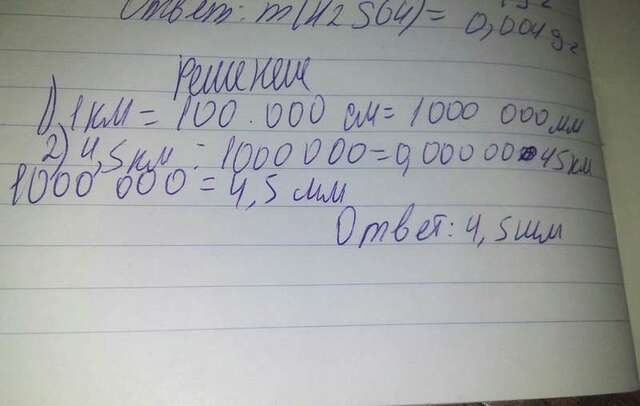 Ответ: m(H2SO4)= 0,0049г
Решение
1) 1 км = 100.000 см = 1000 000 мм
2) 4,5 км : 1000 000 = 0,00000 45 км
1000 000 = 4,5 мм
Ответ: 4,5 мм